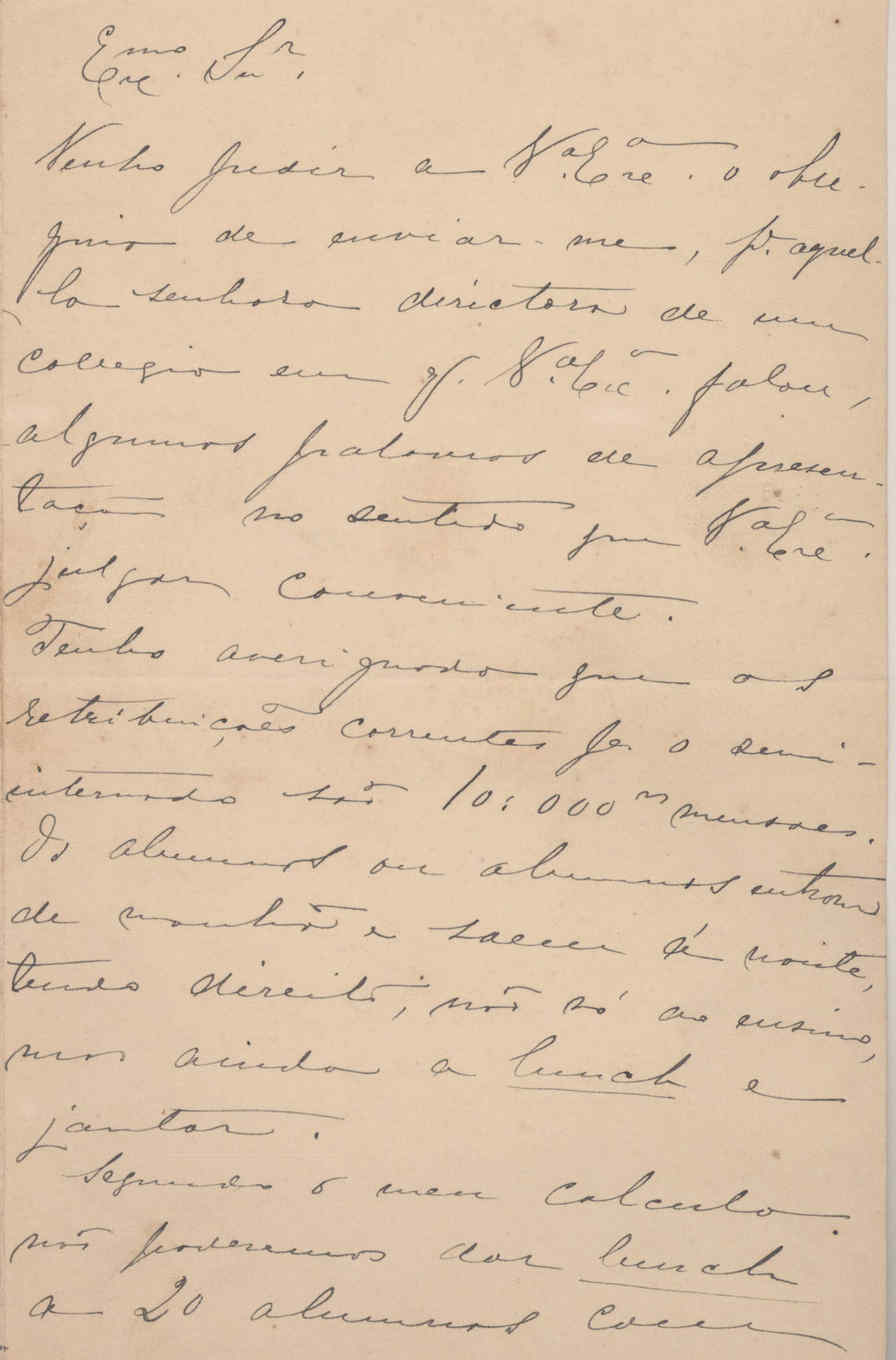 Exmo. Snr.
Venho pedir a V.a Exc.a o obse-
quio de enviar-me, pa. aquel-
la senhora directora de um
collegio em q. V.a Exc.a fallou,
algumas palavras de apresen-
tação no sentido que V.a Exc.a
julgar conveniente.
Tenho averiguado que as
retribuições correntes pa. o semi-
internado são 10:000 rs mensaes.
Os alumnos ou alumnas entram
de manhã e saem á noite,
tendo direito, não só ao ensino,
mas ainda a lunch e
jantar.
Segundo o meu calculo
nós poderemos dar lunch
a 20 alumnos com